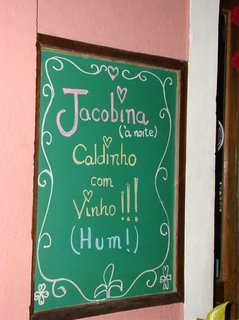 Jacobina
(à noite)
Caldinho
com
Vinho!!!
(Hum!)